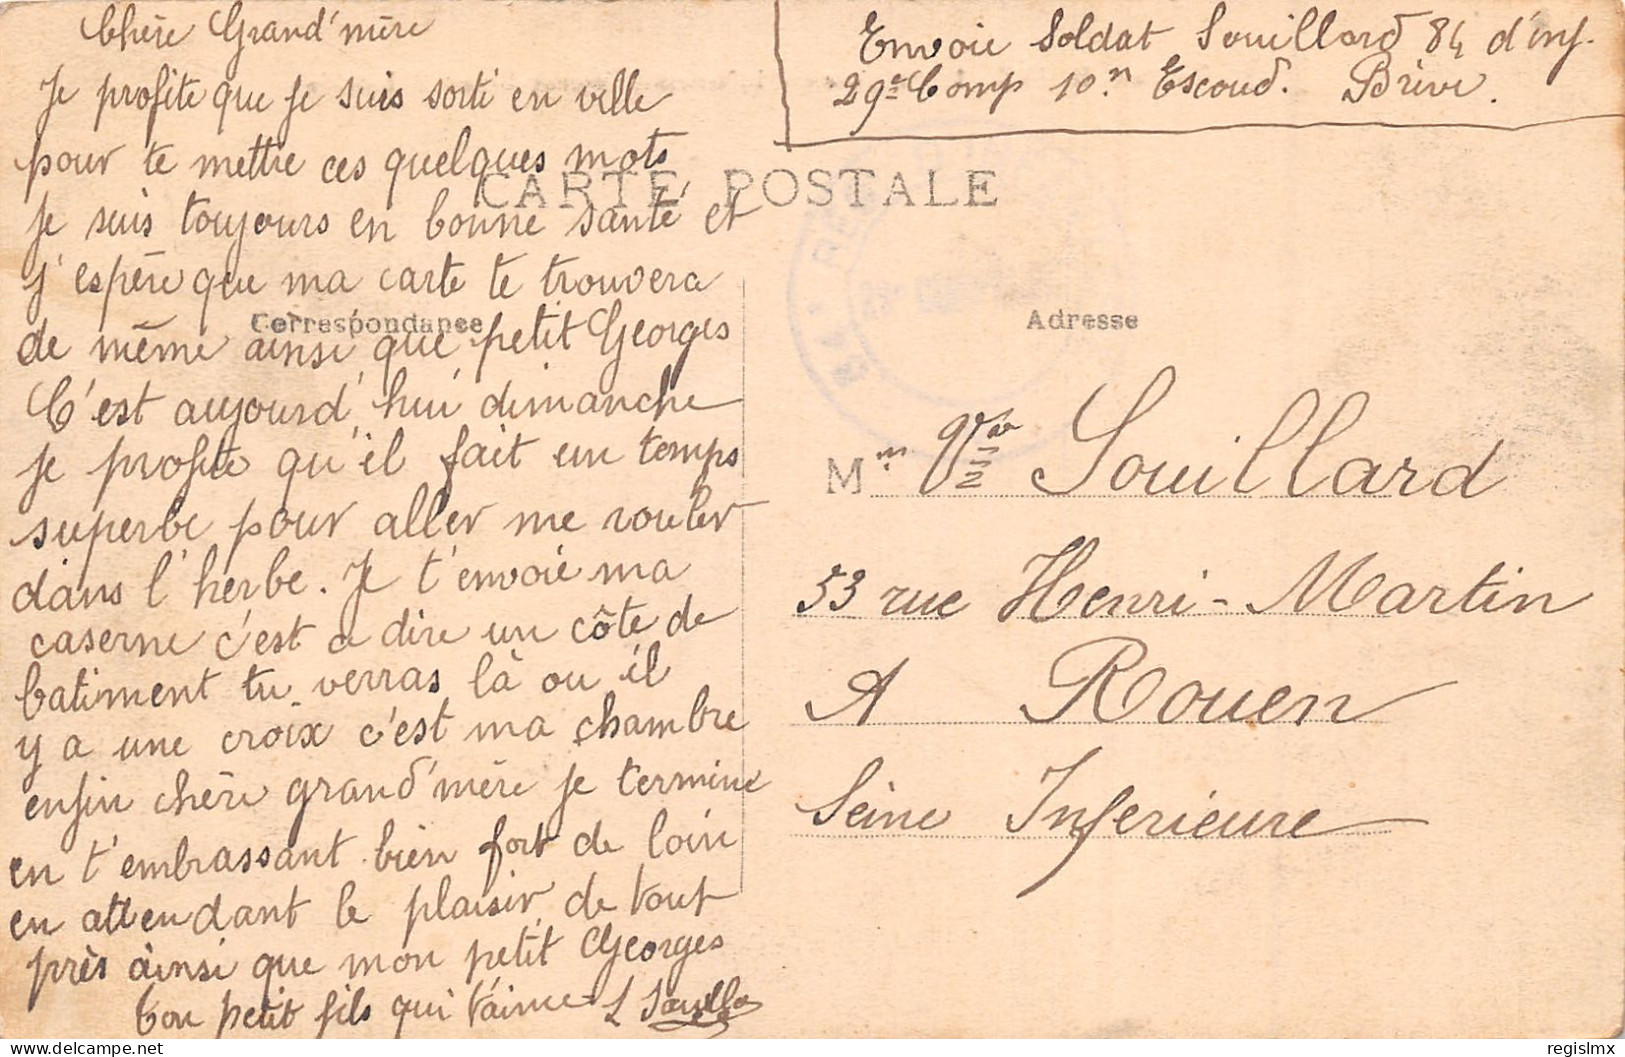 Chère Grand'mère
Je profite que je suis sorti en ville
pour te mettre ces quelques mots
Je suis toujours en bonne santé et
j'espère que ma carte te trouvera
de même ainsi que petit Georges
C'est aujourd'hui dimanche
je profite qu'il fait un temps
superbe pour aller me rouler
dans l'herbe. Je t'envoie ma
caserne c'est a dire un côte de
batiment tu verras là ou il
y a une croix c'est ma chambre
enfin chère grand'mère je termine
en t'embrassant bien fort de loin
en attendant le plaisir de tout
près ainsi que mon petit Georges
Ton petit fils qui t'aime
Envoie Soldat Souillard 84 d'inf.
29e Comp 10n Escoud. Brive.
CARTE POSTALE
Correspondance
Adresse
Mm Vve Souillard
53 rue Henri-Martin
A Rouen
Seine Inferieure
regislmx